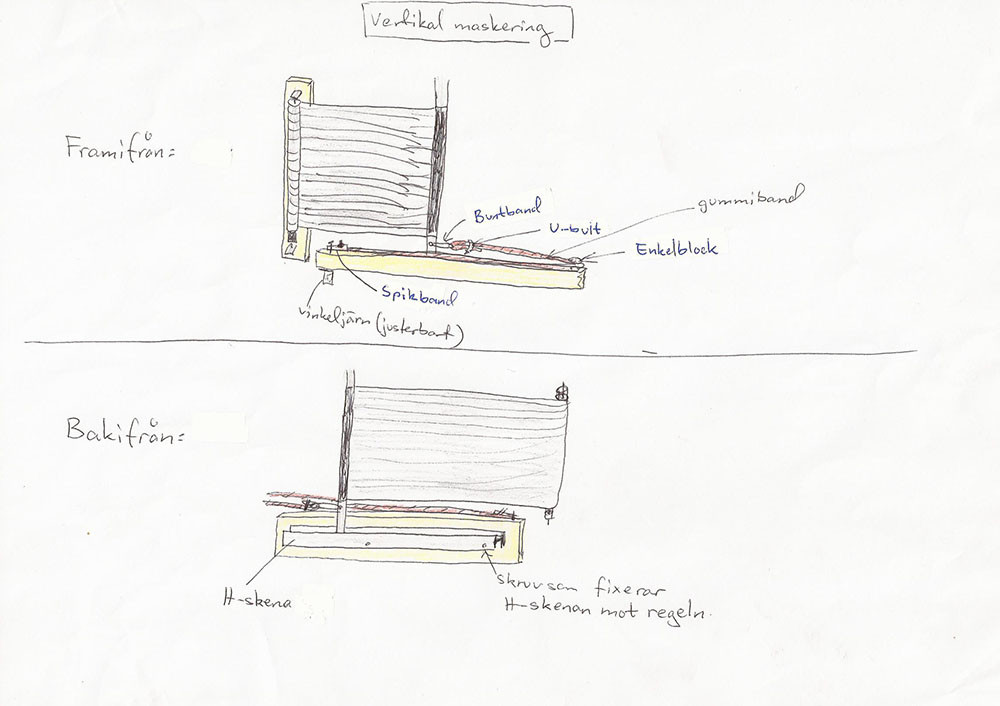 Vertikal maskering
Framifrån:
Buntband
U-bult
gummiband
Enkelblock
Spikband
vinkeljärn (justerbart)
Bakifrån:
H-skena
skruvsan fixerar
H-skenan mot regeln.